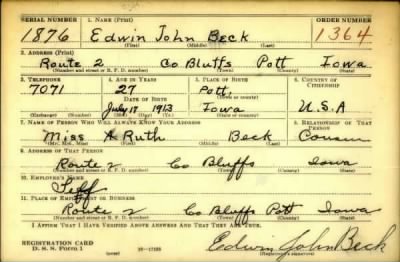 SERIAL NUMBER 1. NAME (Print) ORDER NUMBER
1876 Edwin John Beck 1364
(First) (Middle) (Last)
2. ADDRESS (Print)
Route 2 Co Bluffs Pott Iowa
(Number and street or R. F. D. number) (Town) (County) (State)
3. TELEPHONE 4. AGE IN YEARS 5. PLACE OF BIRTH 6. COUNTRY OF CITIZENSHIP
7071 27 Pott,
DATE OF BIRTH (Town or county)
July 17 1913 Iowa U.S.A
(Exchange) (Number) (Mo.) (Day) (Yr.) (State or country)
7. NAME OF PERSON WHO WILL ALWAYS KNOW YOUR ADDRESS 8. RELATIONSHIP OF THAT PERSON
Miss A Ruth Beck Cousin
(Mr., Mrs., Miss) (First) (Middle) (Last)
9. ADDRESS OF THAT PERSON
Route 2 Co Bluffs Iowa
(Number and street or R. F. D. number) (Town) (County) (State)
10. EMPLOYER'S NAME
Self
11. PLACE OF EMPLOYMENT OR BUSINESS
Route 2 Co Bluffs Pott Iowa
(Number and street or R. F. D. number) (Town) (County) (State)
I AFFIRM THAT I HAVE VERIFIED ABOVE ANSWERS AND THAT THEY ARE TRUE.
REGISTRATION CARD
D. S. S. Form 1 Edwin John Beck
(over) 16-17105 (Registrant's signature)